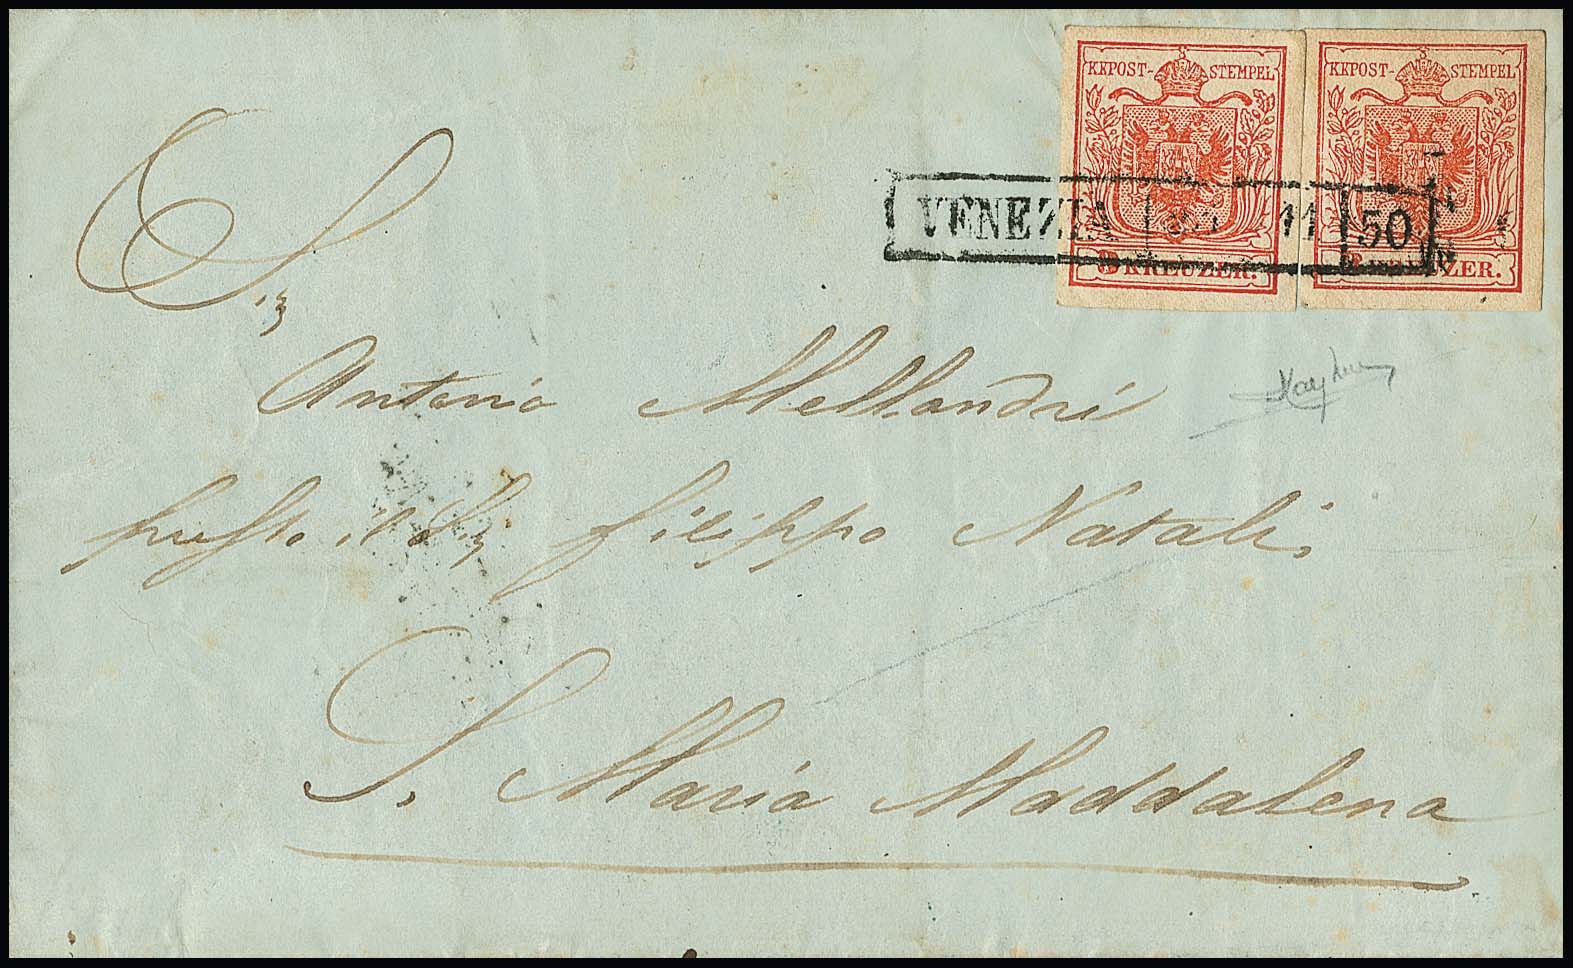 KKPOST-STEMPEL KKPOST-STEMPEL
VENEZIA 11 50
3 KREUZER. 3 KREUZER.
Sig
Antonio Mellandri
presso il Sig Filippo Natali
S. Maria Maddalena